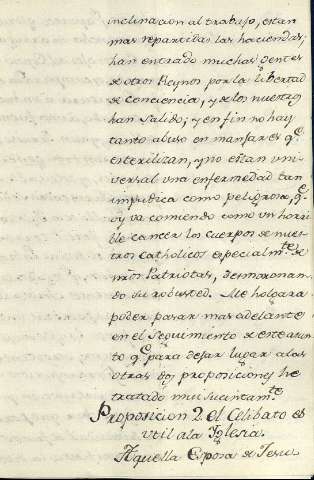 inclinacion al trabajo, estan
mas repartidas las haciendas;
han entrado muchas Gentes
de otros Reynos por la libertad
de Conciencia, y de los nuestros
han Salido; y en fin no hay
tanto abuso en manjares q.e
esterilizan, y no estan uni
versal una enfermedad tan
impudica como peligrosa, q.e
oy va comiendo como un horri
ble cancer los cuerpos de nues
tros Catholicos especialm.te
de nr̃os Patriotas, desmoronan
do su robusted. Me holgara
poder pasar mas adelante
en el Seguimiento de este asun
to q.e para dejar lugar a las
otras dos proposiciones he
tratado mui sucintam.te
Proposicion 2. el Celibato es
util a la Iglesia.
Aquella Esposa de Jesu